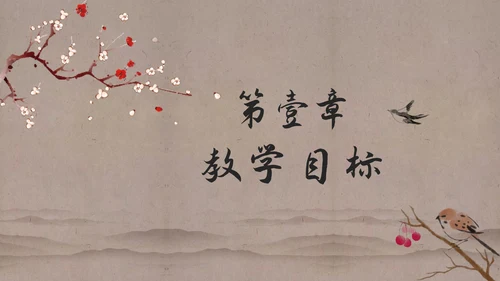 第壹章
教学目标